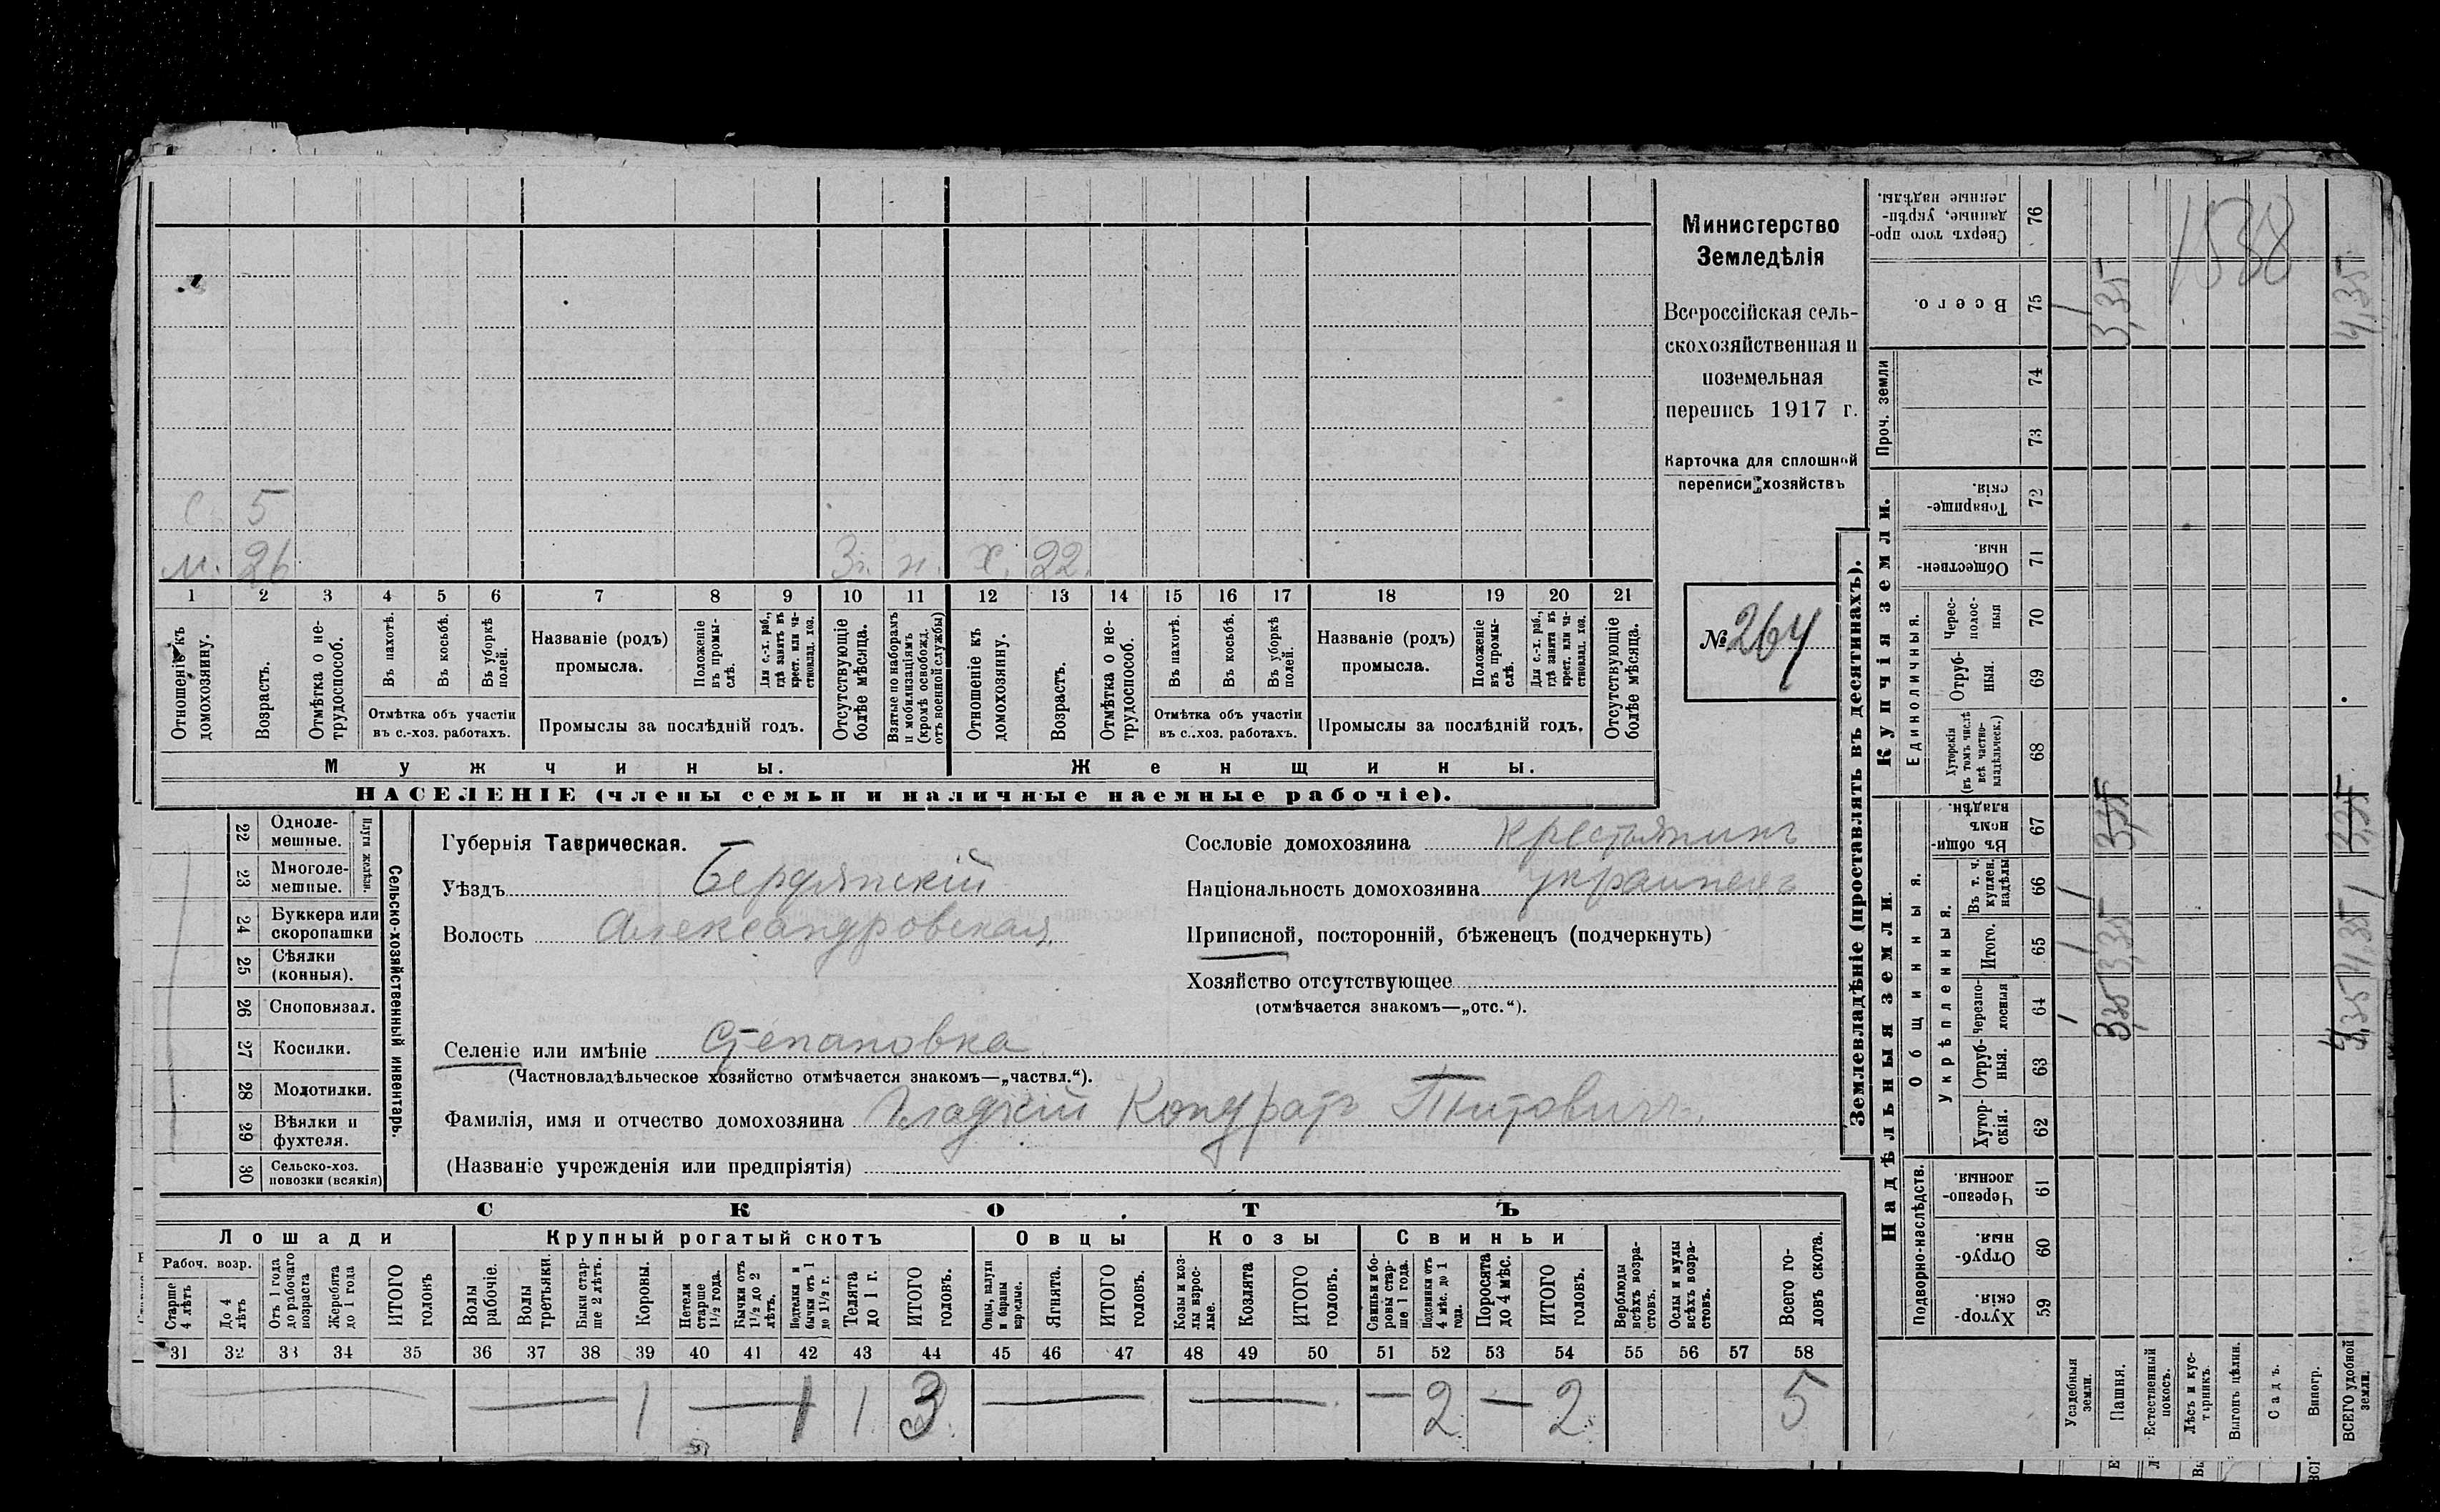 Министерство
Земледѣлія
Всероссійская сель-
скохозяйственная и
поземельная
перепись 1917 г.
Карточка для сплошной
переписи хозяйствъ
№ 264
с 5
м. 26 3г. н. х. 22.
1 2 3 4 5 6 7 8 9 10 11 12 13 14 15 16 17 18 19 20 21
Отношеніе къ домохозяину.
Возрастъ.
Отмѣтка о не-трудоспособ.
Въ пахотѣ.
Въ косьбѣ.
Въ уборкѣ полей.
Отмѣтка объ участіи
въ с.-хоз. работахъ.
Названіе (родъ)
промысла.
Положеніе въ промы-слѣ.
Для с.-х. раб., гдѣ занятъ въ крест. или ча-стновлад. хоз.
Промыслы за послѣдній годъ.
Отсутствующіе болѣе мѣсяца.
Взятые по наборамъ и мобилизаціямъ (кромѣ освобожд. отъ военной службы)
Отношеніе къ домохозяину.
Возрастъ.
Отмѣтка о не-трудоспособ.
Въ пахотѣ.
Въ косьбѣ.
Въ уборкѣ полей.
Отмѣтка объ участіи
въ с.-хоз. работахъ.
Названіе (родъ)
промысла.
Положеніе въ промы-слѣ.
Для с.-х. раб., гдѣ занята въ крест. или ча-стновлад. хоз.
Промыслы за послѣдній годъ.
Отсутствующіе болѣе мѣсяца.
Мужчины. Женщины.
НАСЕЛЕНІЕ (члены семьи и наличные наемные рабочіе).
Сельско-хозяйственный инвентарь.
Плуги желѣзн.
22 Однолe-мешные.
23 Многоле-мешные.
24 Буккера или скоропашки
25 Сѣялки (конныя).
26 Сноповязал.
27 Косилки.
28 Молотилки.
29 Вѣялки и фухтеля.
30 Сельско-хоз. повозки (всякія)
Губернія Таврическая.
Уѣздъ Бердянскій
Волость Александровская
Селеніе или имѣніе Степановка
(Частновладѣльческое хозяйство отмѣчается знакомъ—„частвл.“).
Фамилія, имя и отчество домохозяина Гладкій Кондратъ Титовичъ.
(Названіе учрежденія или предпріятія)
Сословіе домохозяина крестьянинъ
Національность домохозяина украинецъ
Приписной, посторонній, бѣженецъ (подчеркнуть)
Хозяйство отсутствующее
(отмѣчается знакомъ—„отс.“).
СКОТЪ
Лошади Крупный рогатый скотъ Овцы Козы Свиньи
Рабоч. возр.
Старше 4 лѣтъ
До 4 лѣтъ
Отъ 1 года до рабочаго возраста
Жеребята до 1 года
ИТОГО головъ
Волы рабочіе.
Волы третьяки.
Быки стар-ше 2 лѣтъ.
Коровы.
Нетели старше 1½ года.
Бычки отъ 1½ до 2 лѣтъ.
Подтелки и бычки отъ 1 до 1½ г.
Телята до 1 г.
ИТОГО головъ.
Овцы, валухи и бараны взрослые.
Ягнята.
ИТОГО головъ.
Козы и коз-лы взрос-лые.
Козлята
ИТОГО головъ.
Свиньи и бо-ровы стар-ше 1 года.
Подсвинки отъ 4 мѣс. до 1 года.
Поросята до 4 мѣс.
ИТОГО головъ.
Верблюды всѣхъ возра-стовъ.
Ослы и мулы всѣхъ возра-стовъ.
Всего го-ловъ скота.
31 32 33 34 35 36 37 38 39 40 41 42 43 44 45 46 47 48 49 50 51 52 53 54 55 56 57 58
— — 1 — 1 1 3 — — — 2 — 2 5
Землевладѣніе (проставлять въ десятинахъ).
Надѣльныя земли.
Купчія земли.
Проч. земли
Подворно-наслѣдств.
Общинныя.
Укрѣпленныя.
Единоличныя.
Сверхъ того про-данные, укрѣп-ленные надѣлы. 76
Всего. 75
74
73
Товарище-скія. 72
Обществен-ныя. 71
Черес-полос-ныя 70
Отруб-ныя. 69
Хуторскія (въ томъ числѣ всѣ частно-владѣльческ.) 68
Въ общи-номъ владѣн. 67
Въ т. ч. куплен. надѣлы 66
Итого. 65
черезпо-лосныя 64
Отруб-ныя. 63
Хутор-скія. 62
Черезпо-лосныя. 61
Отруб-ныя. 60
Хутор-скія. 59
Усадебныя земли. 1 1 1 1
Пашня. 3,35 3,35 3,35 3,35
Естественный покосъ.
Лѣсъ и кус-тарникъ.
Выгонъ цѣлин.
Садъ.
Виногр.
ВСЕГО удобной земли. 4,35 4,35 1 3,35 4,35
1538